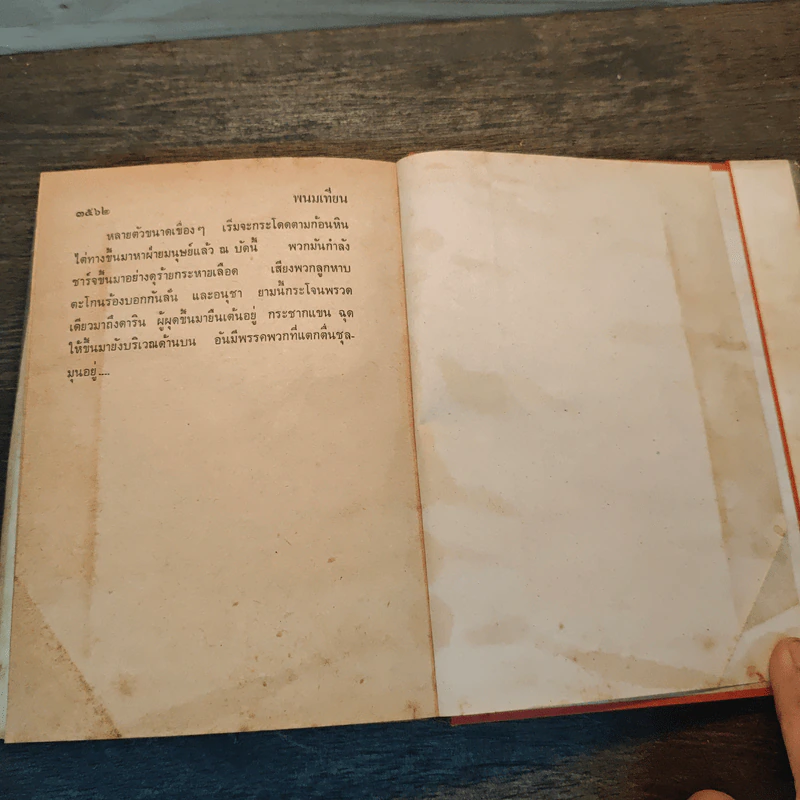 ๓๕๖๒
พนมเทียน
หลายตัวขนาดเขื่อง ๆ เริ่มจะกระโดดตามก้อนหิน
ไต่ทางขึ้นมาหาฝ่ายมนุษย์แล้ว ณ บัดนี้ พวกมันกำลัง
ชาร์จขึ้นมาอย่างดุร้ายกระหายเลือด เสียงพวกลูกหาบ
ตะโกนร้องบอกกันลั่น และอนุชา ยามนี้กระโจนพรวด
เดียวมาถึงดาริน ผู้ผุดขึ้นมายืนเต้นอยู่ กระชากแขน ฉุด
ให้ขึ้นมายังบริเวณด้านบน อันมีพรรคพวกที่แตกตื่นชุล-
มุนอยู่....